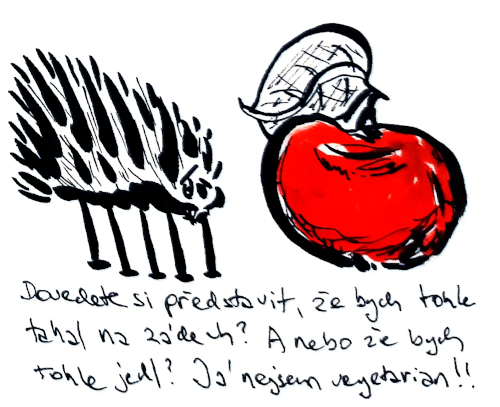 Dovedete si představit, že bych tohle
tahal na zádech? A nebo že bych
tohle jedl? Já nejsem vegetarian!!